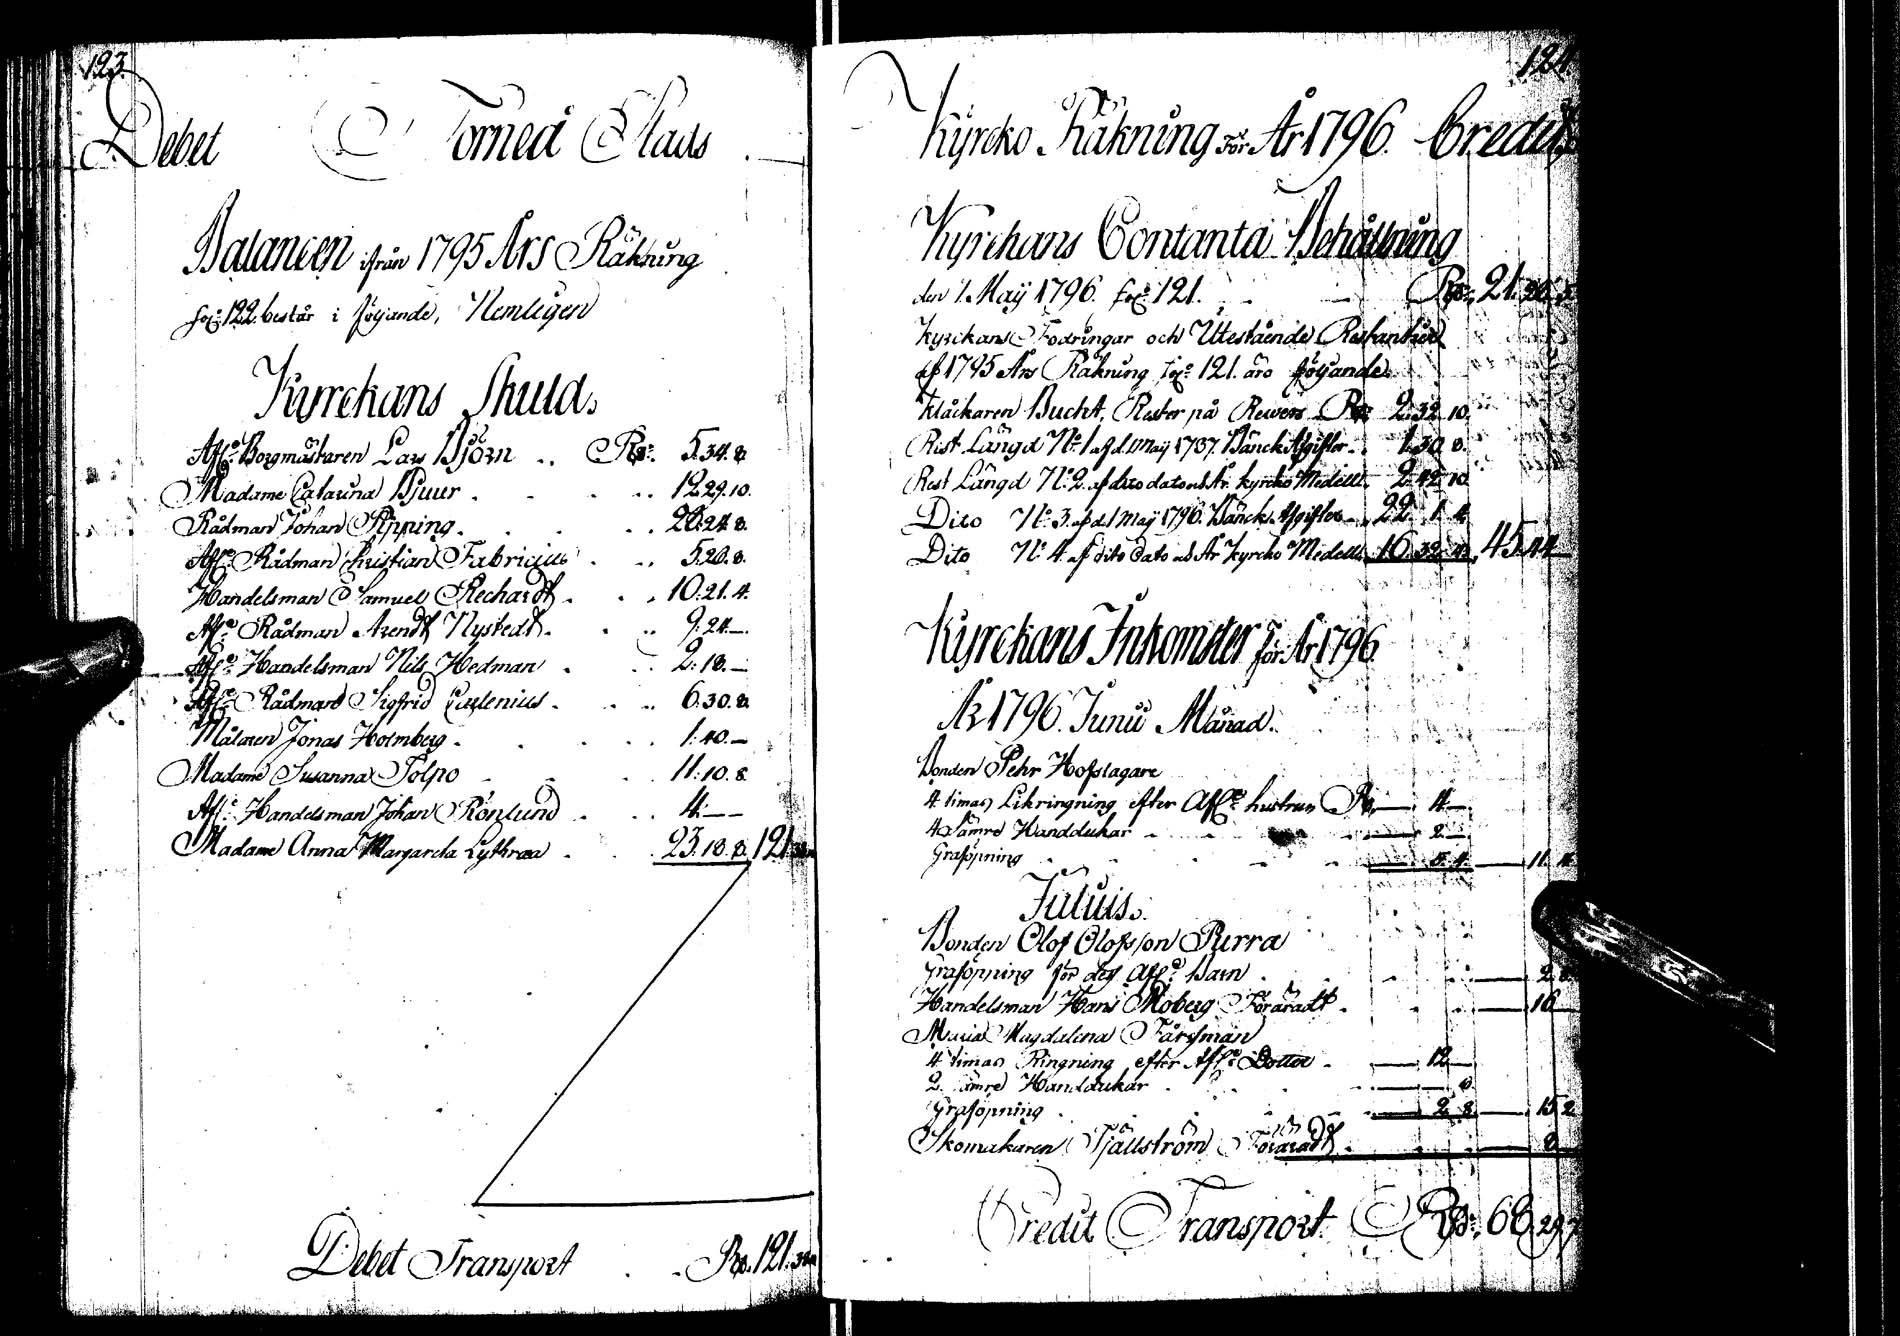 123.
Debet Torneå Stads
Balancen ifrån 1795 Års Räkning
fol: 122. består i följande, Nemligen
Kyrckans Skuld.
Afl: Borgmästaren Lars Björn .. Rd: 5.34.8.
Madame Catarina Djuur . . . .. 12.29.10.
Rådman Johan Pipping . . .. 20.24.8.
Afl: Rådman Christian Fabricius . .. 5.20.8.
Handelsman Samuel Rechardt . . . 10.21.4.
Afl: Rådman Arendt Nystedt . . .. 9.24.—
Afl: Handelsman Nils Hedman . .. 2.18.—
Afl: Rådman Sigfrid Carlenius . . .. 6.30.8.
Målaren Jonas Holmberg . . . .. 1.40.—
Madame Susanna Tolpo . . .. 11.10.8.
Afl: Handelsman Johan Rönlund . .. 4.— —
Madame Anna Margareta Lythræa . . 23.18.8. 121.
Debet Transport . . Rd. 121.
124
Kyrcko Räkning för År 1796. Credit
Kyrckans Contanta Behållning
den 1. Maij 1796. fol: 121. . — Rd: 21.
Kyrckans Fodringar och Utestående Restantier
af 1795 Års Räkning fol: 121. äro följande.
Klåckaren Bucht, Rester på Revers Rd 2.32.10.
Rest Längd N:o 1 af d. 1 Maij 1737. Bänck Afgifter . . 1.30.8.
Rest Längd N:o 2. af dito dato och År Kyrcko Medell. 2.42.10.
Dito N:o 3. af d. 1 Maij 1796. Bänck Afgifter . . 22. 1. 4.
Dito N:o 4. af dito dato och År Kyrcko Medell. 16.32. 45.44
Kyrckans Inkomster för År 1796.
År 1796. Junii Månad.
Bonden Pehr Hofslagare
4 timas Likringning efter Afl:e hustrun Rd. — 4 —
4 sämre Handdukar . . . — 2 —
Graföpning . . . — 5. 4. — 11. 4.
Julius.
Bonden Olof Olofsson Purra
Graföpning för deß Afl:e Barn . . . — 2.
Handelsman Hans Moberg Föräradt . . — 16
Maria Magdalena Färgman
4 timas Ringning efter Afl:e Dotter . — 12
2. sämre Handdukar . . . —
Graföpning . . . — 2. 8. — 15. 2
Skomakaren Fjällström Föräradt . . — 8
Credit Transport. Rd: 68.29.7